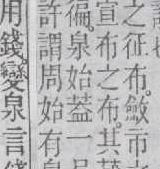 之征布。斂市
宣布之布。其藏
徧。泉始蓋一品
許謂周始有泉
用錢。變泉言錢